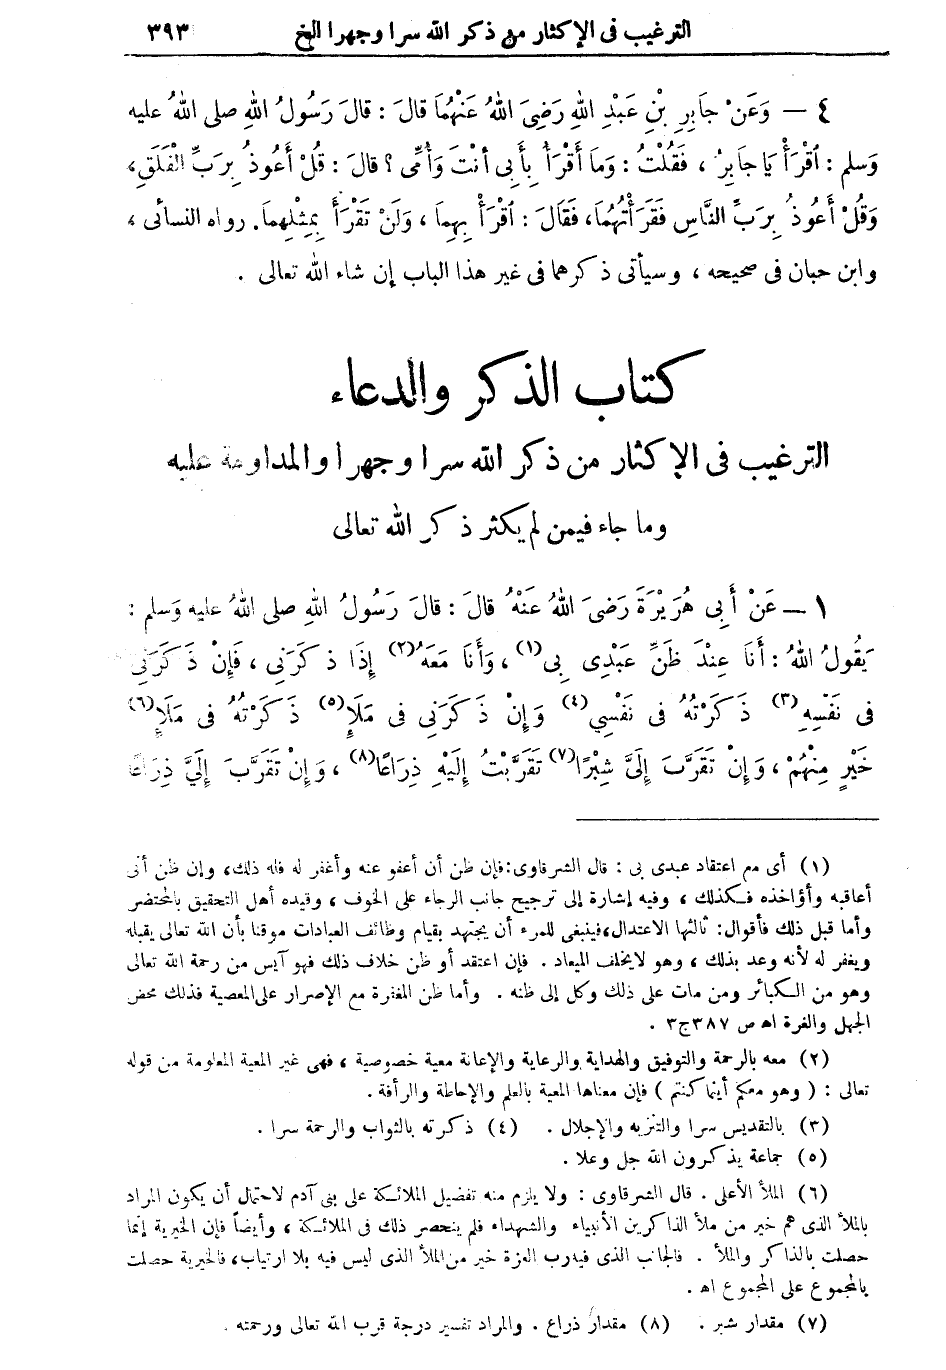 الترغيب فى الإكثار من ذكر الله سرا وجهرا الخ ٣٩٣
٤ — وَعَنْ جَابِرِ بْنِ عَبْدِ اللهِ رَضِىَ اللهُ عَنْهُمَا قالَ : قالَ رَسُولُ اللهِ صلى اللهُ عليه
وَسلم : ٱقْرَأْ يَا جَابِرُ ، فَقُلْتُ : وَمَا أَقْرَأُ بِأَبِى أَنْتَ وَأُمِّى ؟ قالَ : قُلْ أَعُوذُ بِرَبِّ الْفَلَقِ،
وَقُلْ أَعُوذُ بِرَبِّ النَّاسِ فَقَرَأْتُهُمَا، فَقَالَ : ٱقْرَأْ بِهِمَا ، وَلَنْ تَقْرَأَ بِمِثْلِهِمَا. رواه النسائى ،
وابن حبان فى صحيحه ، وسيأتى ذكرهما فى غير هذا الباب إن شاء الله تعالى .
كتاب الذكر والدعاء
الترغيب فى الإكثار من ذكر الله سرا وجهرا والمداومة عليه
وما جاء فيمن لم يكثر ذكر الله تعالى
١ — عَنْ أَبِى هُرَيْرَةَ رَضِىَ اللهُ عَنْهُ قالَ : قالَ رَسُولُ اللهِ صلى اللهُ عليه وَسلم :
يَقُولُ اللهُ : أَنَا عِنْدَ ظَنِّ عَبْدِى بِى(١) ، وَأَنَا مَعَهُ(٢) إِذَا ذَكَرَنِى ، فَإِنْ ذَكَرَنِى
فِى نَفْسِهِ(٣) ذَكَرْتُهُ فِى نَفْسِي(٤) وَإِنْ ذَكَرَنِى فِى مَلَإٍ(٥) ذَكَرْتُهُ فِى مَلَإٍ(٦)
خَيْرٍ مِنْهُمْ ، وَإِنْ تَقَرَّبَ إِلَىَّ شِبْرًا(٧) تَقَرَّبْتُ إِلَيْهِ ذِرَاعًا(٨) ، وَإِنْ تَقَرَّبَ إِلَيَّ ذِرَاعًا
(١) أى مع اعتقاد عبدى بى : قال الشرقاوى : فإن ظن أن أعفو عنه وأغفر له فله ذلك، وإن ظن أنى
أعاقبه وأؤاخذه فكذلك ، وفيه إشارة إلى ترجيح جانب الرجاء على الخوف ، وقيده أهل التحقيق بالمحتضر
وأما قبل ذلك فأقوال : ثالثها الاعتدال، فينبغى للمرء أن يجتهد بقيام وظائف العبادات موقنا بأن الله تعالى يقبله
ويغفر له لأنه وعد بذلك ، وهو لايخلف الميعاد . فإن اعتقد أو ظن خلاف ذلك فهو آيس من رحمة الله تعالى
وهو من الكبائر ومن مات على ذلك وكل إلى ظنه . وأما ظن المغفرة مع الإصرار على المعصية فذلك محض
الجهل والغرة اهـ ص ٣٨٧ ج ٣ .
(٢) معه بالرحمة والتوفيق والهداية والرعاية والإعانة معية خصوصية ، فهى غير المعية المعلومة من قوله
تعالى : ( وهو معكم أينما كنتم ) فإن معناها المعية بالعلم والإحاطة والرأفة .
(٣) بالتقديس سرا والتنزيه والإجلال . (٤) ذكرته بالثواب والرحمة سرا .
(٥) جماعة يذكرون الله جل وعلا .
(٦) الملأ الأعلى . قال الشرقاوى : ولا يلزم منه تفضيل الملائكة على بنى آدم لاحتمال أن يكون المراد
بالملأ الذى هم خير من ملأ الذاكرين الأنبياء والشهداء فلم ينحصر ذلك فى الملائكة ، وأيضاً فإن الخيرية إنما
حصلت بالذاكر والملأ . فالجانب الذى فيه رب العزة خير من الملأ الذى ليس فيه بلا ارتياب، فالخيرية حصلت
بالمجموع على المجموع اهـ .
(٧) مقدار شبر . (٨) مقدار ذراع . والمراد تفسير درجة قرب الله تعالى ورحمته .